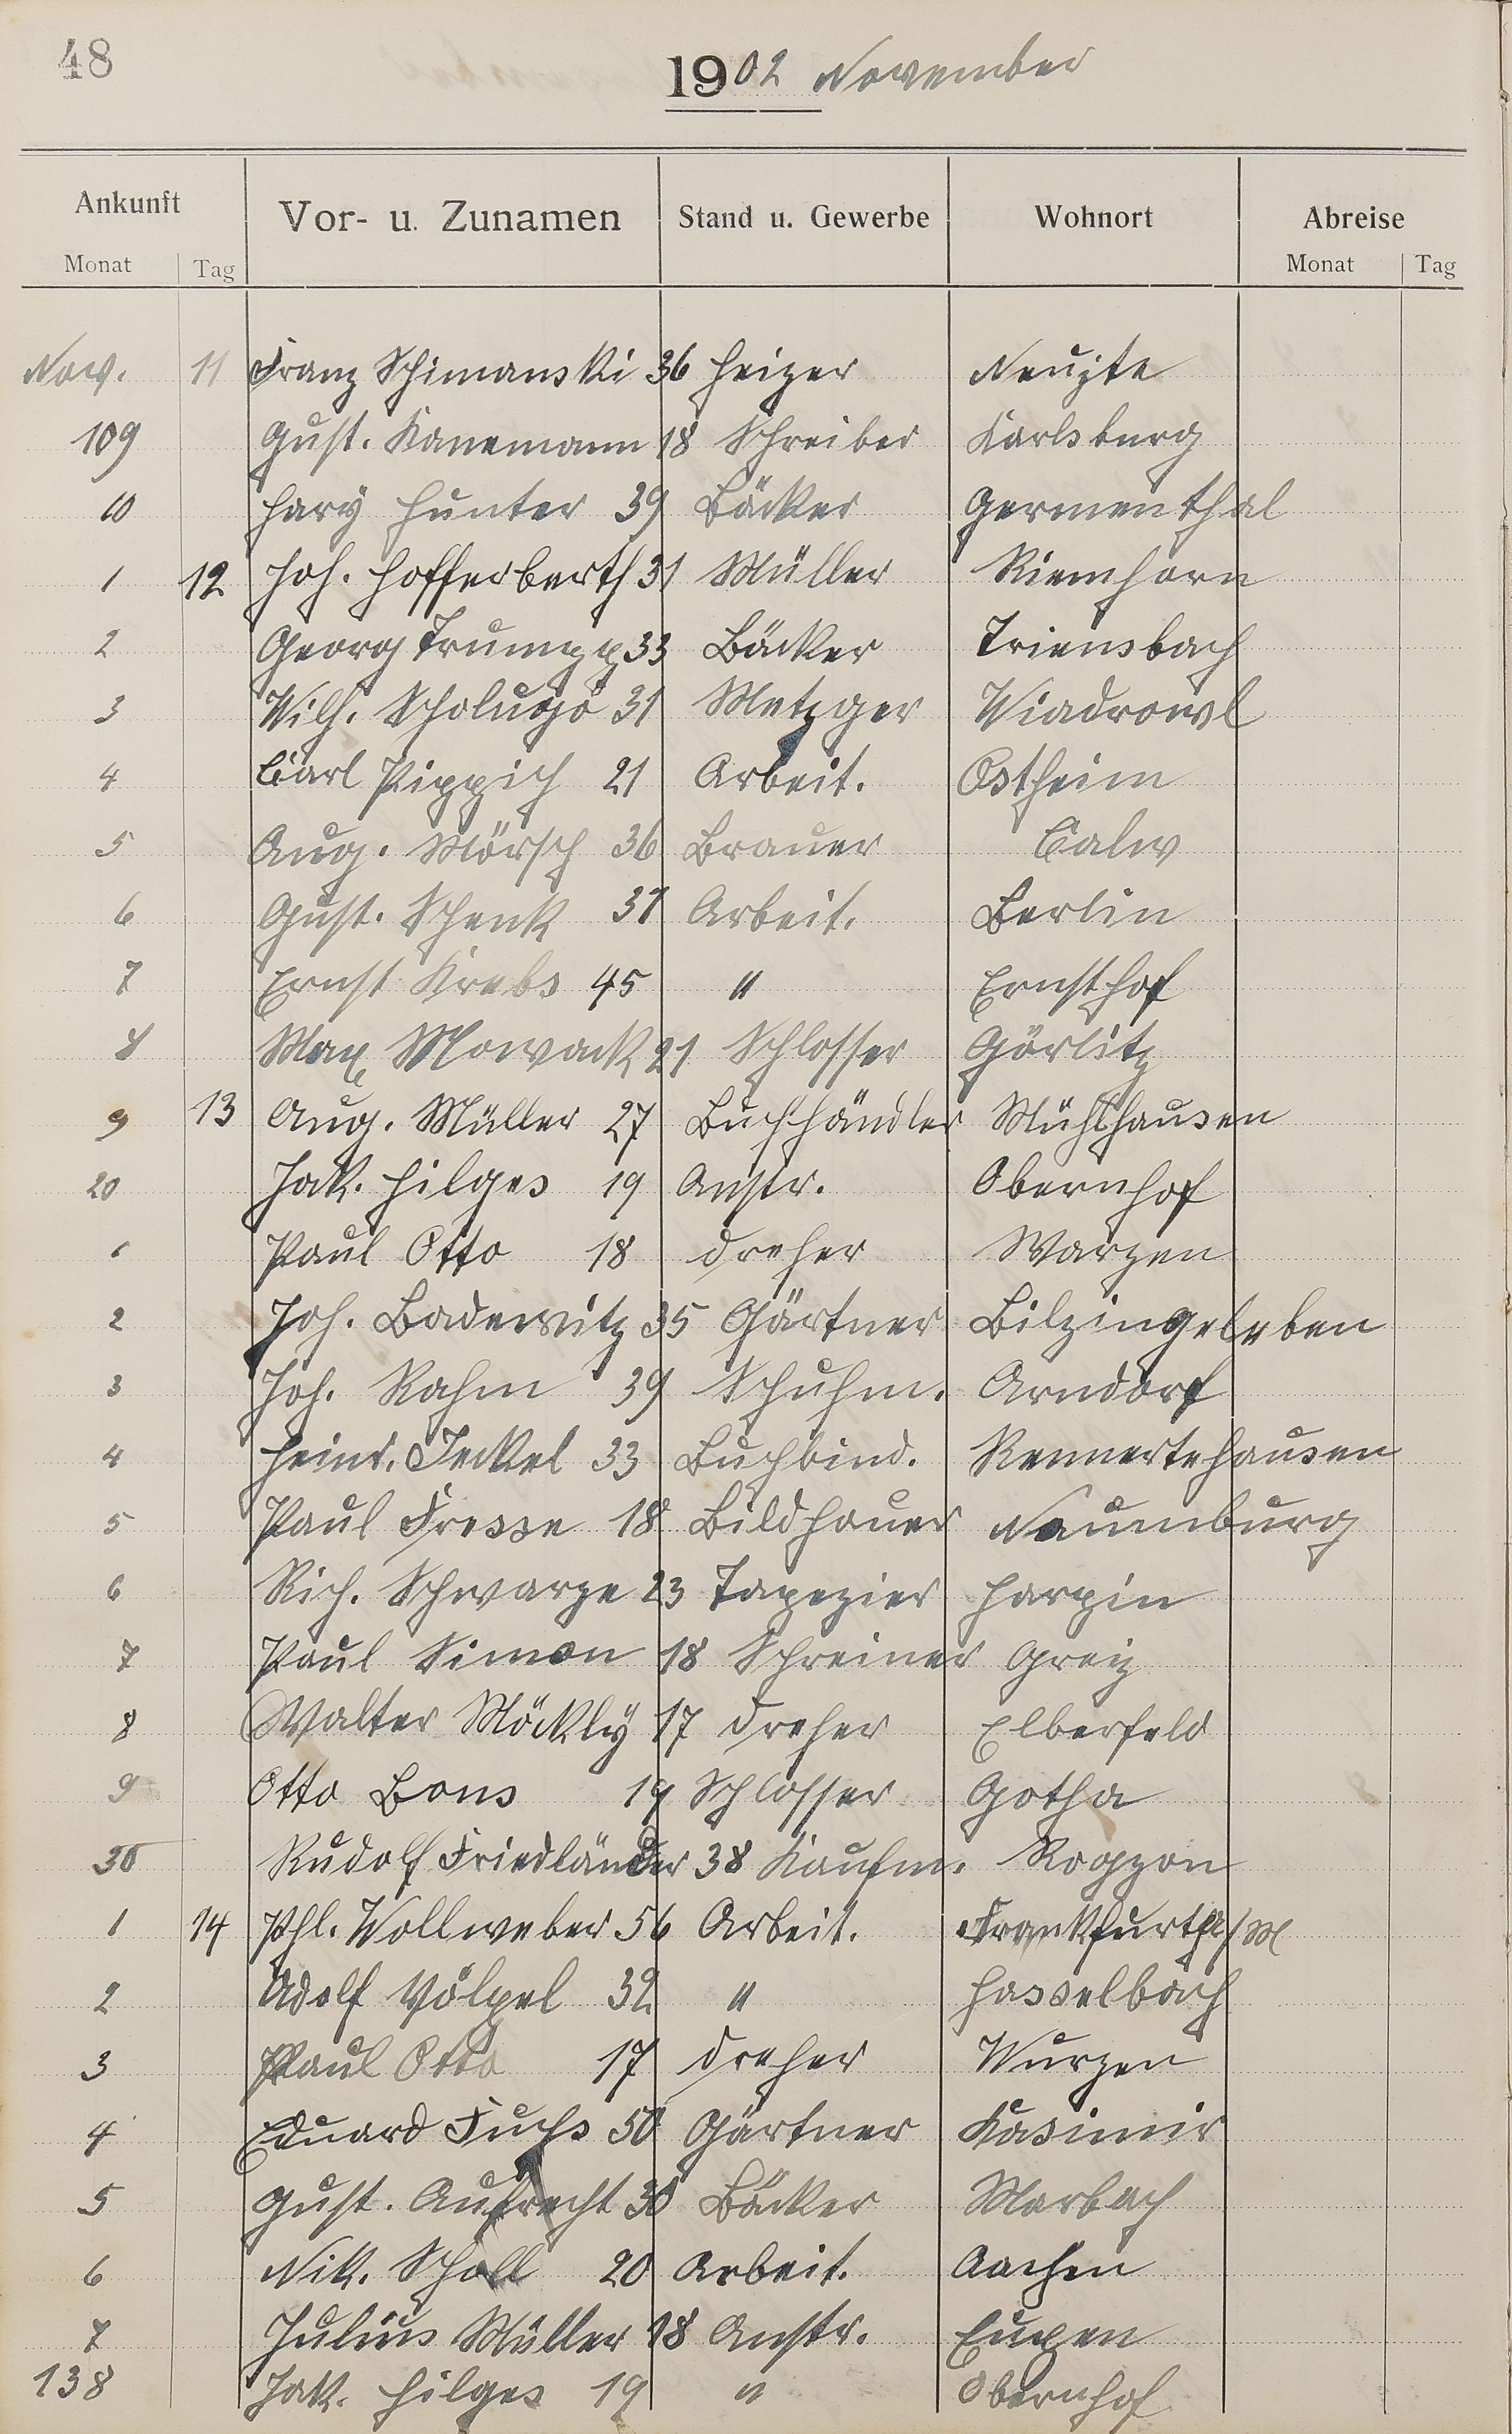 48
1902 November
Ankunft Vor- u. Zunamen Stand u. Gewerbe Wohnort Abreise
Monat Tag Monat Tag
Nov. 11 Franz Schimanski 36 Heizer Neuzte
109 Gust. Kanemann 18 Schreiber Karlsburg
10 Hary Hunter 39 Bäcker Germenthal
1 12 Joh. Hofferberth 31 Müller Rienhorn
2 Georg Trumpp 33 Bäcker Triensbach
3 Wilh. 31 Metzger Wiadrowl
4 Carl Pippich 21 Arbeit. Ostheim
5 Aug. Mörsch 36 Brauer Calw
6 Gust. Schenk 37 Arbeit. Berlin
7 Ernst Krebs 45 " Ernsthof
8 Max Mowack 21 Schlosser Görlitz
9 13 Aug. Müller 27 Buchhändler Mühlhausen
20 Jak. Hilges 19 Anstr. Obernhof
1 Paul Otto 18 Dreher Warzen
2 Joh. Badewitz 35 Gärtner Bilzingsleben
3 Joh. Rahm 39 Schuhm. Arndorf
4 Heinr. Jeckel 33 Buchbind. Rennertehausen
5 Paul Fresse 18 Bildhauer Naumburg
6 Rich. Schwarze 23 Tapezier Harpin
7 Paul Simon 18 Schreiner Greiz
8 Walter Möckly 17 Dreher Elberfeld
9 Otto Bons 19 Schlosser Gotha
30 Rudolf Friedländer 38 Kaufm. Rogzon
1 14 Phl. Wollweber 56 Arbeit. Frankfurth a/M
2 Adolf Völpel 32 " Hasselbach
3 Paul Otto 17 Dreher Wurzen
4 Eduard Fuchs 50 Gärtner Kasimir
5 Gust. Aufrecht 30 Bäcker Marbach
6 Nik. Scholl 20 Arbeit. Aachen
7 Julius Müller 18 Anstr. Eupen
138 Jak. Hilges 19 " Obernhof